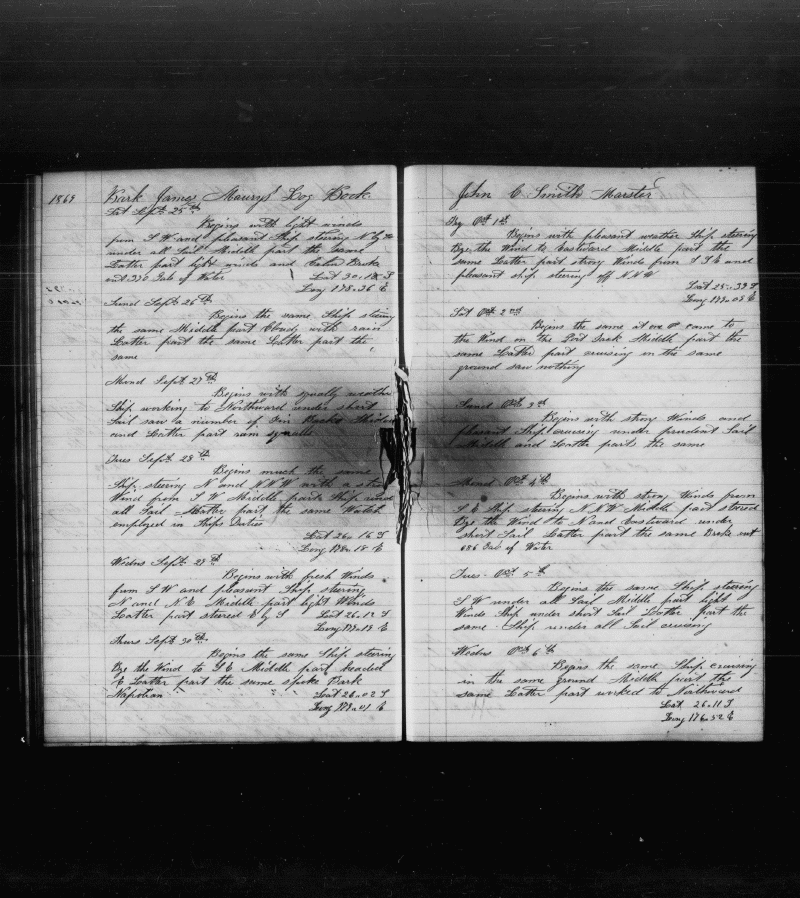 1869
Bark James Maurys Log Book
Sat Sept 25th
Begins with light winds
from S W and pleasant Ship steering N by
under all Sail Middle part the same
Latter part light winds and Calm Broke
out 330 Gals of Water Lat 30..18 S
Long 178..36 E
Sund Sept 26th
Begins the same Ship steering
the same Middle part Cloudy with rain
Latter part the same Latter part the
same
Mond Sept 27th
Begins with squally weather
Ship working to Northward under short
Sail saw a number of Fin Backs Middle
and Latter part rain squalls
Tues Sept 28th
Begins much the same
Ship steering N and N N W with a
Wind from S W Middle parts Ship under
all Sail Latter part the same Watch
employed in Ships Duties
Lat 26..16 S
Long 178..18 E
Wedns Sept 29th
Begins with fresh Winds
from S W and pleasant Ship steering
N and N E Middle part light Winds
Latter part steered E by S Lat 26..12 S
Long 179..19 E
Thurs Sept 30th
Begins the same Ship steering
Bye the Wind to S E Middle part headed
E Latter part the same spoke Bark
Napolian Lat 26..02 S
Long 179..01 E
John C Smith Marster
Fry Oct 1st
Begins with pleasant weather Ship steering
Bye the Wind to Eastward Middle part the
same Latter part strong Winds from S S E and
pleasant ship steering off N N W
Lat 25..39 S
Long 179..05 E
Sat Oct 2nd
Begins the same at one P came to
the Wind on the Port Tack Middle part the
same Latter part cruising in the same
ground saw nothing
Sund Oct 3rd
Begins with strong Winds and
pleasant Ship cruising under prudent Sail
Middle and Latter parts the same
Mond Oct 4th
Begins with strong Winds from
S E Ship steering N N W Middle part steered
Bye the Wind to N and Eastward under
short Sail Latter part the same Broke out
686 Gals of Water
Tues Oct 5th
Begins the same Ship steering
S W under all Sail Middle part light
Winds Ship under short Sail Latter part the
same Ship under all Sail cruising
Wedns Oct 6th
Begins the same Ship cruising
in the same ground Middle part the
same Latter part worked to Northward
Lat 26..11 S
Long 176..52 E